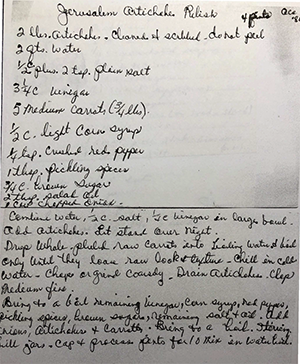 Jerusalem Artichoke Relish
4 pints
2 lbs. Artichokes - cleaned & scrubbed - do not peel
2 qts. water
1/2 c plus 2 tsp. plain salt
3 3/4 C vinegar
5 medium carrots (3/4 lbs).
1/2 C. light Corn syrup
1/4 tsp. crushed red pepper
1 tbsp. pickling spices
3/4 C. brown Sugar
2 tbsp. salad oil
1 cup chopped onion
Combine water, 1/2 c. salt, 1/2 c vinegar in large bowl.
Add Artichokes. Let stand over night.
Drop whole peeled raw carrots into boiling water & boil
only until they lose raw look & texture - Chill in cold
water - Chop or grind coarsely - Drain artichokes - Chop
medium fine.
Bring to a boil remaining vinegar, corn syrup, red pepper,
pickling spices, brown sugar, remaining salt & oil. Add
onions, artichokes & carrots. Bring to a boil.
fill jars. Cap & process pints for 10 min in waterbath.